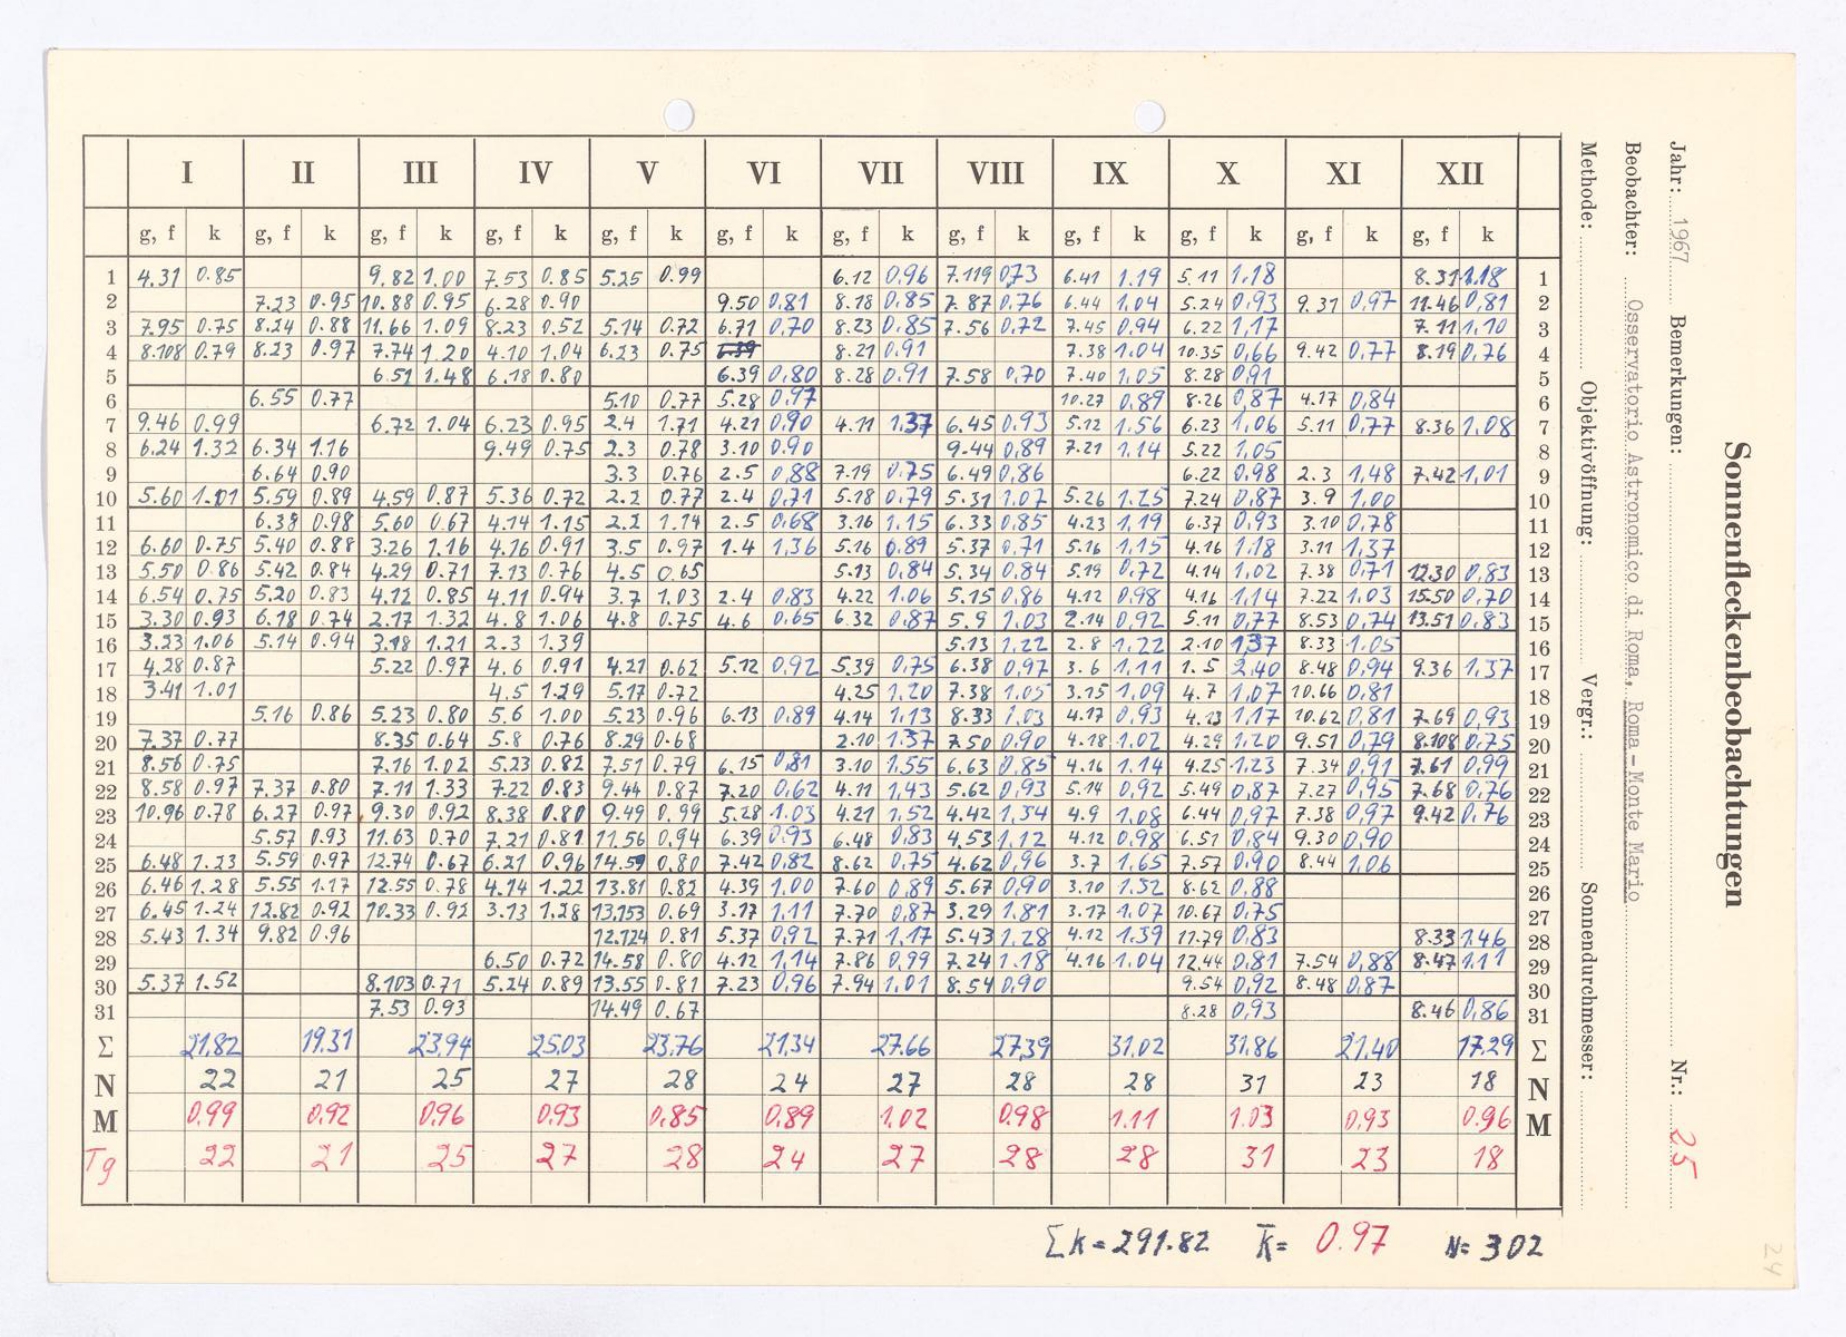 I II III IV V VI VII VIII IX X XI XII
g, f k g, f k g, f k g, f k g, f k g, f k g, f k g, f k g, f k g, f k g, f k g, f k
1 4.31 0.85 9.82 1.00 7.53 0.85 5.25 0.99 6.12 0,96 7.119 0,73 6.41 1.19 5.11 1,18 8.31 1.18 1
2 7.23 0.95 10.88 0.95 6.28 0.90 9.50 0,81 8.18 0,85 7.87 0,76 6.44 1,04 5.24 0,93 9.31 0,97 11.46 0,81 2
3 7.95 0.75 8.24 0.88 11.66 1.09 8.23 0.52 5.14 0.72 6.71 0,70 8.23 0,85 7.56 0,72 7.45 0,94 6.22 1,17 7.11 1,10 3
4 8.108 0.79 8.23 0.97 7.74 1.20 4.10 1.04 6.23 0.75 8.21 0,91 7.38 1,04 10.35 0,66 9.42 0,77 8.19 0,76 4
5 6.51 1.48 6.18 0.80 6.39 0,80 8.28 0,91 7.58 0,70 7.40 1,05 8.28 0,91 5
6 6.55 0.77 5.10 0.77 5.28 0,97 10.27 0,89 8.26 0,87 4.17 0,84 6
7 9.46 0.99 6.72 1.04 6.23 0.95 2.4 1.71 4.21 0,90 4.11 1,37 6.45 0,93 5.12 1,56 6.23 1,06 5.11 0,77 8.36 1,08 7
8 6.24 1.32 6.34 1.16 9.49 0.75 2.3 0.78 3.10 0.90 9.44 0,89 7.21 1,14 5.22 1,05 8
9 6.64 0.90 3.3 0.76 2.5 0,88 7.19 0,75 6.49 0,86 6.22 0,98 2.3 1,48 7.42 1,01 9
10 5.60 1.01 5.59 0.89 4.59 0.87 5.36 0.72 2.2 0.77 2.4 0,71 5.18 0,79 5.31 1,07 5.26 1.25 7.24 0,87 3.9 1,00 10
11 6.38 0.98 5.60 0.67 4.14 1.15 2.2 1.14 2.5 0,68 3.16 1,15 6.33 0,85 4.23 1,19 6.37 0,93 3.10 0,78 11
12 6.60 0.75 5.40 0.88 3.26 1.16 4.16 0.91 3.5 0.97 1.4 1,36 5.16 0,89 5.37 0,71 5.16 1,15 4.16 1,18 3.11 1,37 12
13 5.50 0.86 5.42 0.84 4.29 0.71 7.13 0.76 4.5 0.65 5.13 0,84 5.34 0,84 5.19 0,72 4.14 1,02 7.38 0,71 12.30 0,83 13
14 6.54 0.75 5.20 0.83 4.12 0.85 4.11 0.94 3.7 1.03 2.4 0,83 4.22 1,06 5.15 0,86 4.12 0,98 4.16 1,14 7.22 1,03 15.50 0,70 14
15 3.30 0.93 6.18 0.74 2.17 1.32 4.8 1.06 4.8 0.75 4.6 0,65 6.32 0,87 5.9 1,03 2.14 0,92 5.11 0,77 8.53 0,74 13.51 0,83 15
16 3.23 1.06 5.14 0.94 3.18 1.21 2.3 1.39 5.13 1,22 2.8 1,22 2.10 1,37 8.33 1.05 16
17 4.28 0.87 5.22 0.97 4.6 0.91 4.21 0.62 5.12 0,92 5.39 0,75 6.38 0,97 3.6 1,11 1.5 2,40 8.48 0,94 9.36 1,37 17
18 3.41 1.01 4.5 1.29 5.17 0.72 4.25 1,20 7.38 1,05 3.15 1,09 4.7 1,07 10.66 0,81 18
19 5.16 0.86 5.23 0.80 5.6 1.00 5.23 0.96 6.13 0,89 4.14 1,13 8.33 1,03 4.17 0,93 4.13 1,17 10.62 0,81 7.69 0,93 19
20 7.37 0.77 8.35 0.64 5.8 0.76 8.29 0.68 2.10 1,37 7.50 0,90 4.18 1,02 4.29 1,20 9.51 0,79 8.108 0,75 20
21 8.56 0.75 7.16 1.02 5.23 0.82 7.51 0.79 6.15 0,81 3.10 1,55 6.63 0,85 4.16 1,14 4.25 1,23 7.34 0,91 7.61 0,99 21
22 8.58 0.97 7.37 0.80 7.11 1.33 7.22 0.83 9.44 0.87 7.20 0,62 4.11 1,43 5.62 0,93 5.14 0,92 5.49 0,87 7.27 0,95 7.68 0,76 22
23 10.96 0.78 6.27 0.97 9.30 0.92 8.38 0.80 9.49 0,99 5.28 1.03 4.21 1,52 4.42 1,34 4.9 1,08 6.44 0,97 7.38 0,97 9.42 0,76 23
24 5.57 0.93 11.63 0.70 7.21 0.81 11.56 0,94 6.39 0,93 6.48 0,83 4.53 1,12 4.12 0,98 6.51 0,84 9.30 0,90 24
25 6.48 1.23 5.59 0.97 12.74 0.67 6.21 0.96 14.59 0,80 7.42 0,82 8.62 0,75 4.62 0,96 3.7 1,65 7.57 0,90 8.44 1,06 25
26 6.46 1.28 5.55 1.17 12.55 0.78 4.14 1.22 13.81 0.82 4.39 1,00 7.60 0,89 5.67 0,90 3.10 1,32 8.62 0,88 26
27 6.45 1.24 12.82 0.92 10.33 0.92 3.13 1.28 13.153 0.69 3.17 1,11 7.70 0,87 3.29 1,81 3.17 1,07 10.67 0,75 27
28 5.43 1.34 9.82 0.96 12.124 0.81 5.37 0,92 7.71 1,17 5.43 1,28 4.12 1,39 11.79 0,83 8.33 1,46 28
29 6.50 0.72 14.58 0.80 4.12 1,14 7.86 0,99 7.24 1,18 4.16 1,04 12.44 0,81 7.54 0,88 8.47 1,11 29
30 5.37 1.52 8.103 0.71 5.24 0.89 13.55 0.81 7.23 0,96 7.94 1,01 8.54 0,90 9.54 0,92 8.48 0,87 30
31 7.53 0.93 14.49 0.67 8.28 0,93 8.46 0,86 31
Σ 21,82 19.31 23,94 25.03 23,76 21,34 27.66 27,39 31,02 31,86 21,40 17,29 Σ
N 22 21 25 27 28 24 27 28 28 31 23 18 N
M 0,99 0,92 0,96 0,93 0,85 0,89 1,02 0,98 1.11 1.03 0,93 0.96 M
Tg 22 21 25 27 28 24 27 28 28 31 23 18
Σk = 291.82 k̄ = 0.97 N = 302
Sonnenfleckenbeobachtungen
Jahr: 1967 Bemerkungen: Nr.: 25
Beobachter: Osservatorio Astronomico di Roma, Roma - Monte Mario
Methode: Objektivöffnung: Vergr.: Sonnendurchmesser:
24